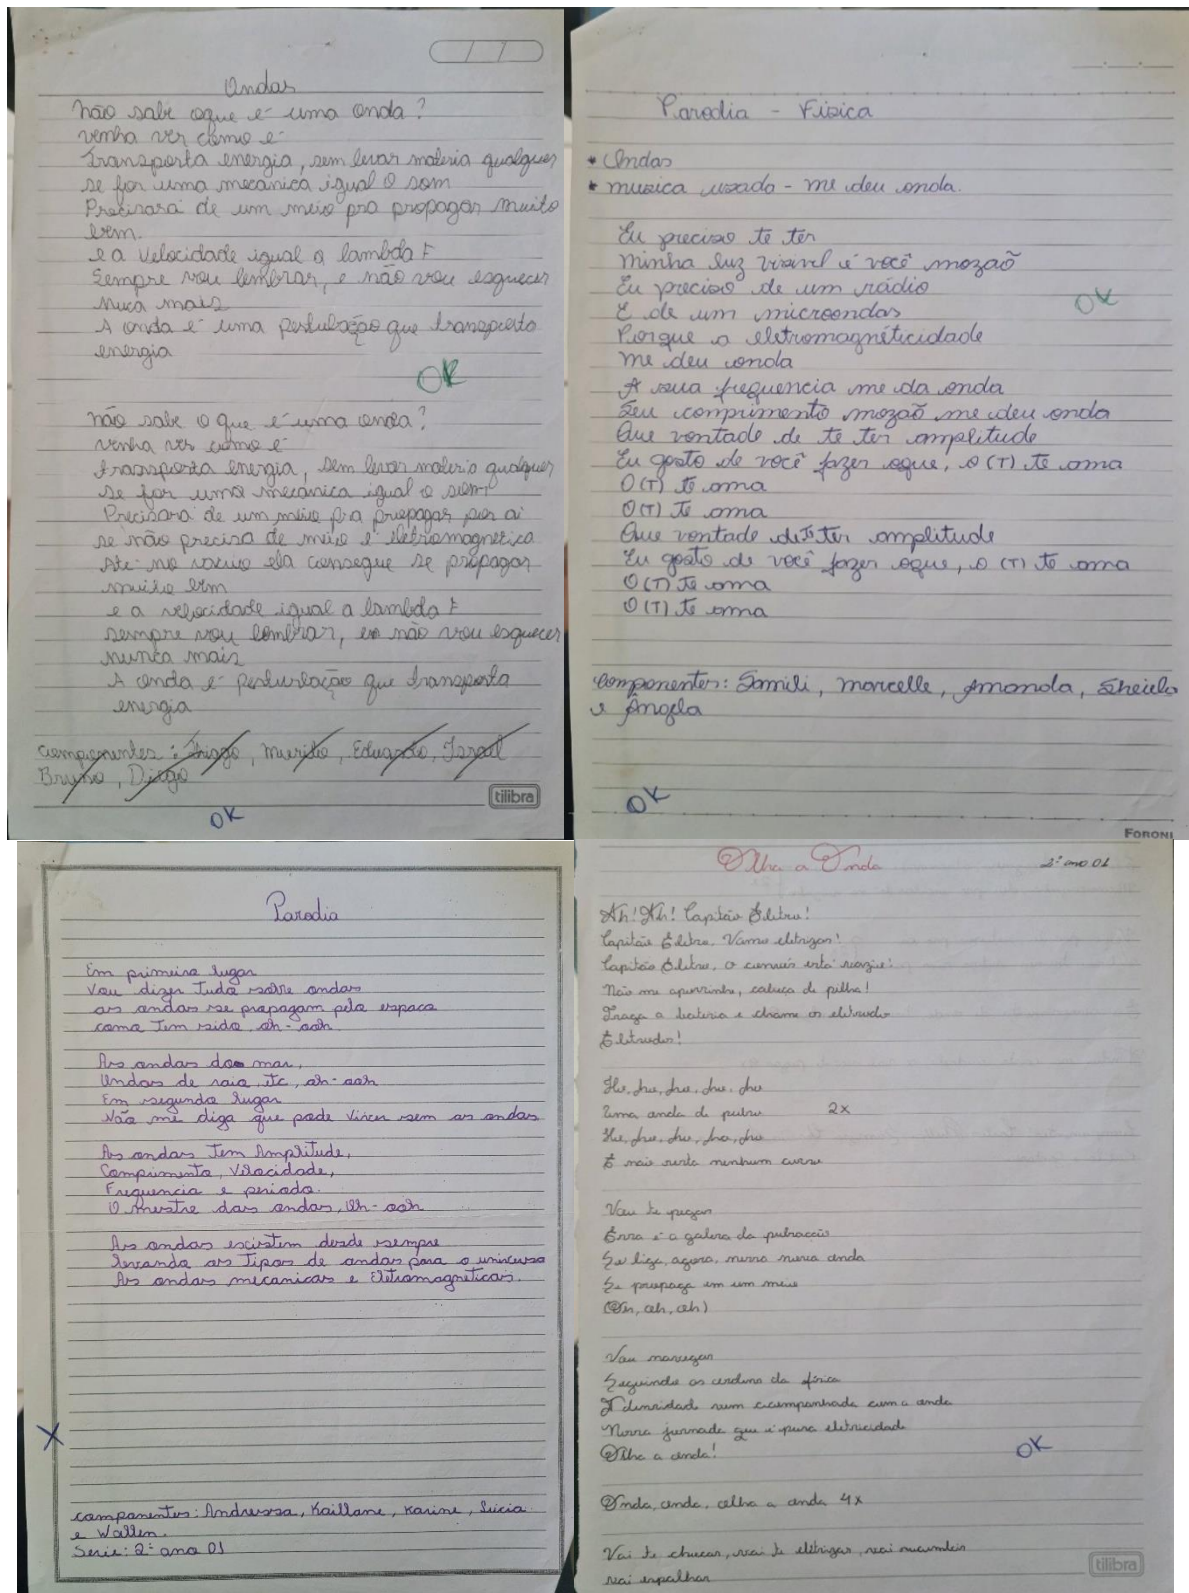 Ondas
Não sabe oque é uma onda?
venha ver como é
Transporta energia, sem levar materia qualquer
se for uma mecânica igual o som
Precisará de um meio pra propagar muito
bem.
e a velocidade igual a lambda F
Sempre vou lembrar, e não vou esquecer
nuca mais
A onda é uma pertubação que transporta
energia
OK
não sabe o que é uma onda?
venha ver como é
transporta energia, sem levar materia qualquer
se for uma mecânica igual o som
Precisará de um meio pra propagar por ai
se não precisa de meio é eletromagnetica
Até no vacuo ela consegue se propagar
muito bem
e a velocidade igual a lambda F
sempre vou lembrar, e não vou esquecer
nunca mais
A onda é perturbação que transporta
energia
componentes: Thiago, Murilo, Eduardo, Israel
Bruno, Diego
tilibra
OK
Parodia - Fisica
• Ondas
• musica usada - me deu onda.
Eu preciso te ter
minha luz visivel é você mozaõ
Eu preciso de um rádio
E de um microondas
Porque a eletromagnéticidade
me deu onda
A sua frequencia me da onda
Seu comprimento mozaõ me deu onda
Que vontade de te ter amplitude
Eu gosto de você fazer oque, o (T) te ama
O (T) te ama
O (T) te ama
Que vontade de te ter amplitude
Eu gosto de você fazer oque, o (T) te ama
O (T) te ama
O (T) te ama
OK
componentes: Samili, Marcelle, Amanda, Sheiela
e Ângela
OK
FORONI
Parodia
Em primeiro lugar
Vou dizer Tudo sobre ondas
as ondas se propagam pelo espaco
como Tem sido oh-ooh
As ondas do mar,
Ondas de raio, etc, oh-ooh
Em segundo lugar
Não me diga que pode viver sem as ondas
As ondas Tem Amplitude,
Comprimento, Velocidade,
Frequencia e periodo.
O mestre das ondas, Oh-ooh
As ondas escistem desde sempre
levando os Tipos de ondas para o universo
As ondas mecanicas e Eletromagneticas.
X
componentes: Andressa, Kaillane, Karine, Lucia
e Wallen.
Serie: 2º ano 01
Olha a Onda
2º ano 01
Ah! Ah! Capitão Eletro!
Capitão Eletro, Vamo eletrizar!
Capitão Eletro, o convés está vazio!
Não me aporrinhe, cabeça de pilha!
Traga a bateria e chame os eletrudos
Eletrudos!
Hu, hu, hu, hu, hu
Uma onda de pulso 2x
Hu, hu, hu, hu, hu
E não resta nenhum
Vou te pegar
Essa é a galera da pulsação
Se liga, agora, nessa nova onda
Se propaga em um meio
(Oh, oh, oh)
Vou navegar
Seguindo as ordens da física
densidade vem acompanhada com a onda
Nossa jornada que é pura eletricidade
Olha a onda!
OK
Onda, onda, olha a onda 4x
Vai te chocar, vai te eletrizar, vai
vai espalhar
tilibra